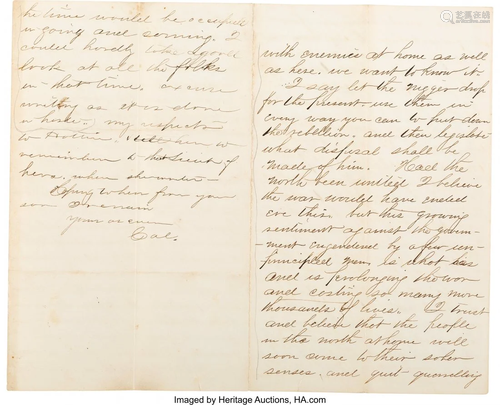 the time would be occupied
in going and coming. I
could hardly take a good
look at all the folks
in that time. excuse
writing as it is done
in haste. my respects
to
remain him to
hera. when she
Hoping to hear from you
soon I remain
Your as ever
Cal.
with enemies at home as well
as here. we want to know it.
I say let the nigger drop
for the present. use them in
every way you can to put down
the rebellion. and then legislate
what disposal shall be
made of him. Had the
north been united I believe
the war would have ended
ere this. but this growing
sentiment against the govern-
ment engendered by a few un-
principled men is what has
and is prolonging the war
and costing so many more
thousands of lives. I trust
and believe that the people
in the north at home will
soon come to their sober
senses. and quit quarrelling
Imaged by Heritage Auctions, HA.com